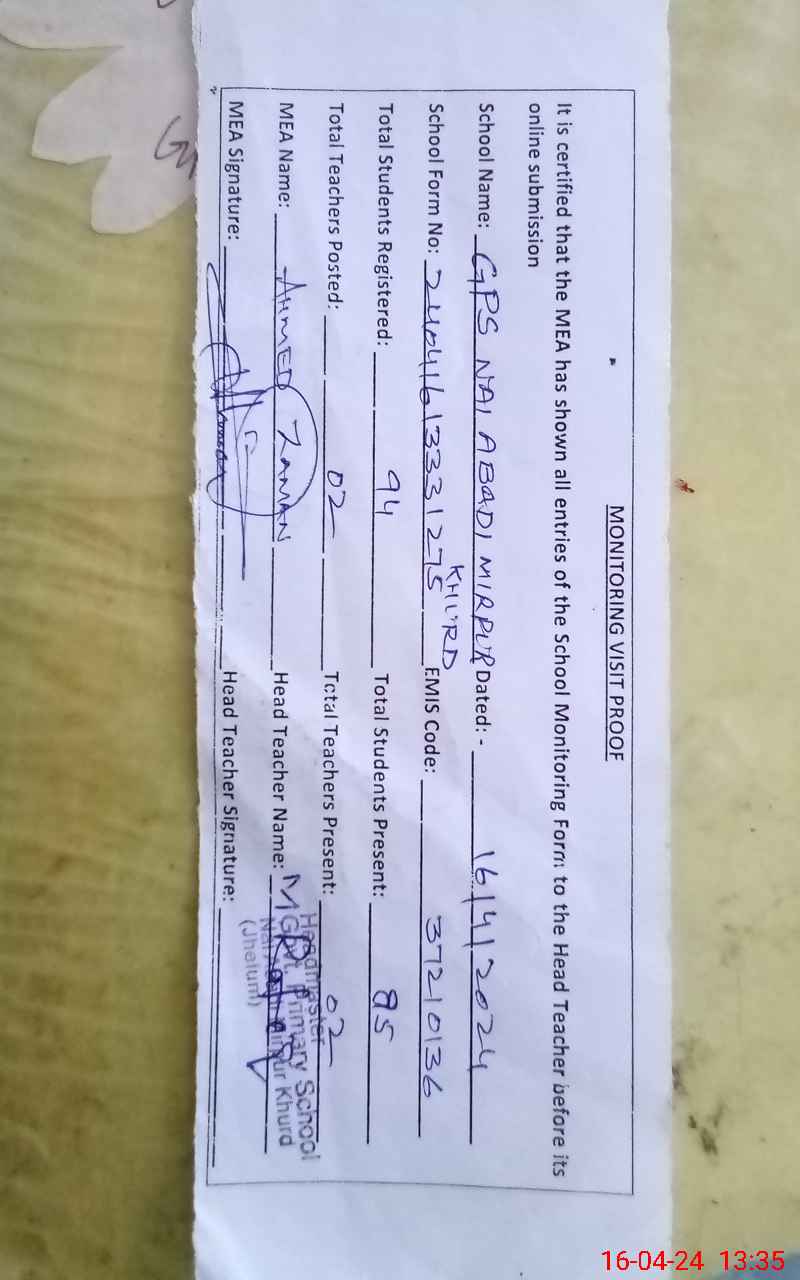 MONITORING VISIT PROOF
It is certified that the MEA has shown all entries of the School Monitoring Form to the Head Teacher before its
online submission
School Name: GPS NAI ABADI MIRPUR Dated: - 16/4/2024
KHURD
School Form No: 24041613331275 EMIS Code: 37210136
Total Students Registered: 94 Total Students Present: 85
Total Teachers Posted: 02 Total Teachers Present: 02
MEA Name: AHMED ZAMAN Head Teacher Name:
Headmaster
Govt. Primary School
Mirpur Khurd
(Jhelum)
MEA Signature: Head Teacher Signature:
16-04-24 13:35